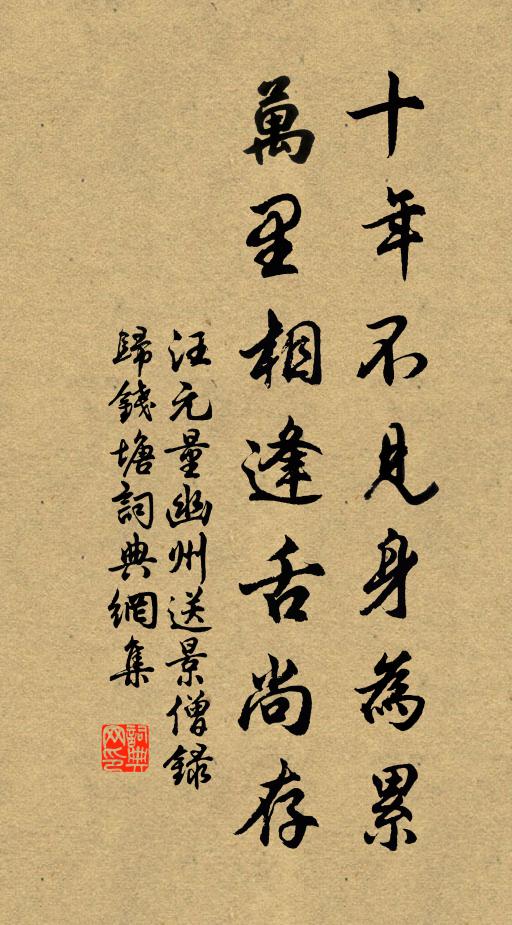 十年不見身為累
萬里相逢舌尚存
汪元量幽州送景僧錄
歸錢塘詞典網集
詞典網印